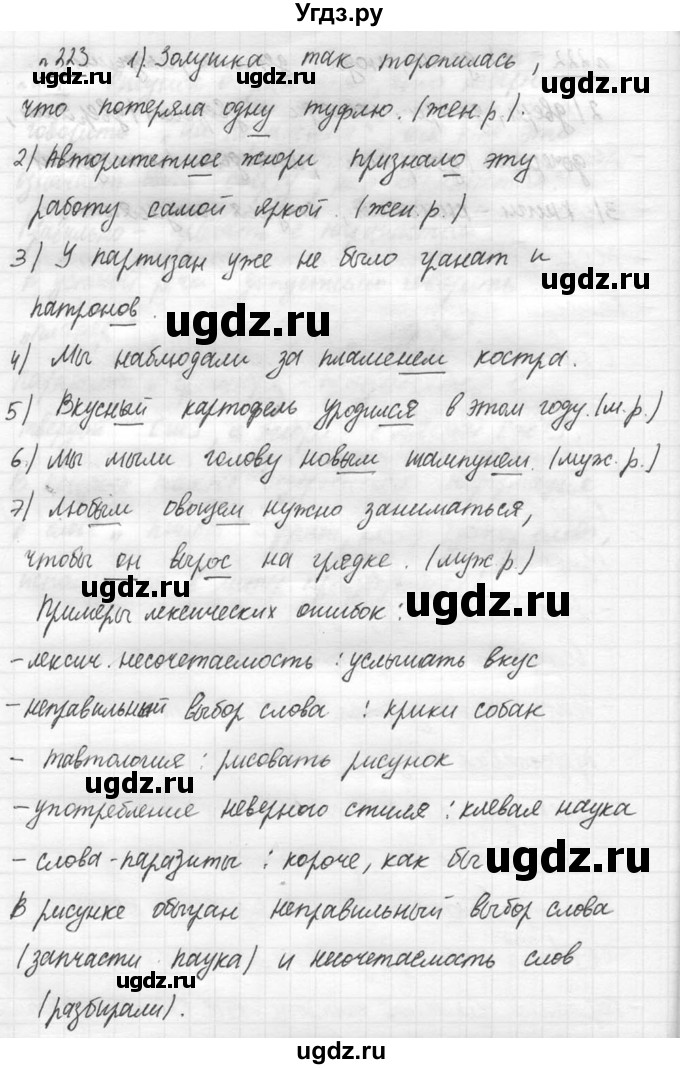 Угдз.ру
№223 1) Золушка так торопилась,
что потеряла одну туфлю. (жен.р.).
2) Авторитетное жюри признало эту
работу самой яркой. (жен.р.)
3) У партизан уже не было гранат и
патронов.
ugdz.ru
ugdz.ru
4) Мы наблюдали за пламенем костра.
5) Вкусный картофель уродился в этом году. (м.р.)
6.) Мы мыли голову новым шампунем. (муж.р.)
7) Любым овощем нужно заниматься,
чтобы он вырос на грядке. (муж.р.)
ugdz.ru
ugdz.ru
Примеры лексических ошибок:
- лексич. несочетаемость: услышать вкус
- неправильный выбор слова: крики собак
- тавтология: рисовать рисунок
ugdz.ru
- употребление неверного стиля: клевая наука
- слова-паразиты: короче, как бы
ugdz.ru
В рисунке обыгран неправильный выбор слова
(запчасти паука) и несочетаемость слов
ugdz.ru
ugdz.ru
(разбирали).
ugdz.ru